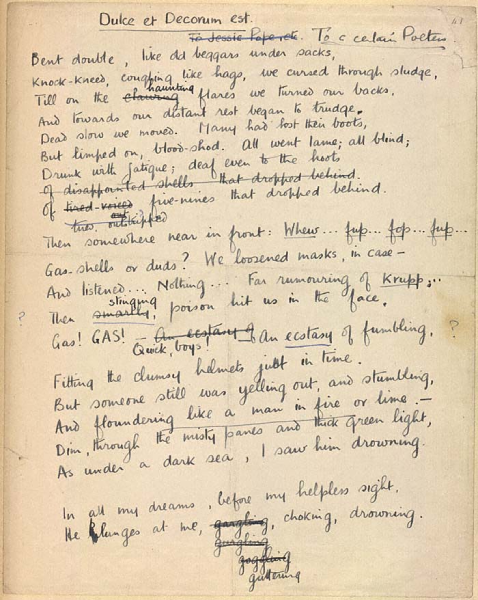 Dulce et Decorum est.
To Jessie Pope etc. To a certain Poetess.
41
Bent double, like old beggars under sacks,
Knock-kneed, coughing like hags, we cursed through sludge,
haunting
Till on the clawing flares we turned our backs,
And towards our distant rest began to trudge.
Dead slow we moved. Many had lost their boots,
But limped on, blood-shod. All went lame; all blind;
Drunk with fatigue; deaf even to the hoots
of disappointed shells that dropped behind.
Of tired-voiced five-nines that dropped behind.
outstripped
Then somewhere near in front: Whew... fup... fop... fup...
Gas-shells or duds? We loosened masks, in case –
And listened.... Nothing.... Far rumouring of Krupp;..
stinging
? Then smartly, poison hit us in the face.
Gas! GAS! – An ecstasy of An ecstasy of fumbling, ?
Quick, boys!
Fitting the clumsy helmets just in time.
But someone still was yelling out, and stumbling,
And floundering like a man in fire or lime. –
Dim, through the misty panes and thick green light,
As under a dark sea, I saw him drowning.
In all my dreams, before my helpless sight,
He plunges at me, gargling, choking, drowning.
gurgling
goggling
guttering